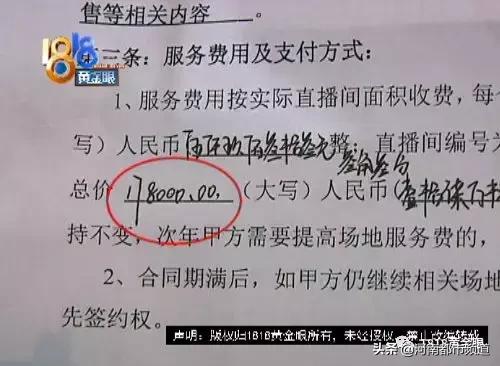 售等相关内容。
1818
黄金眼
第三条：服务费用及支付方式：
1、服务费用按实际直播间面积收费，每
写）人民币 整；直播间编号为
叁角叁分
总价 178000.00，（大写）人民币（壹拾柒万
持不变，次年甲方需要提高场地服务费的，
2、合同期满后，如甲方仍继续相关场地
先签约权。
声明：版权归1818黄金眼所有，未经授权，禁止改编转载
1818黄金眼
头条@河南都市频道